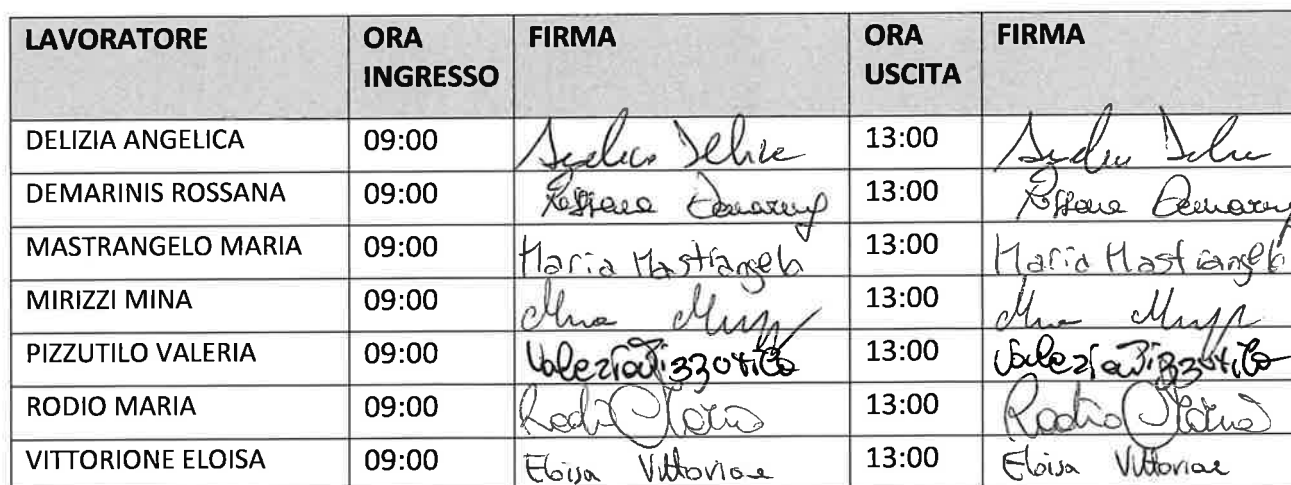 LAVORATORE ORA INGRESSO FIRMA ORA USCITA FIRMA
DELIZIA ANGELICA 09:00 13:00
DEMARINIS ROSSANA 09:00 Rossana Demarinis 13:00 Rossana Demarinis
MASTRANGELO MARIA 09:00 Maria Mastrangelo 13:00 Maria Mastrangelo
MIRIZZI MINA 09:00 Mina 13:00 Mina
PIZZUTILO VALERIA 09:00 Valeria Pizzutilo 13:00 Valeria Pizzutilo
RODIO MARIA 09:00 Rodio Maria 13:00 Rodio Maria
VITTORIONE ELOISA 09:00 Eloisa Vittorione 13:00 Eloisa Vittorione